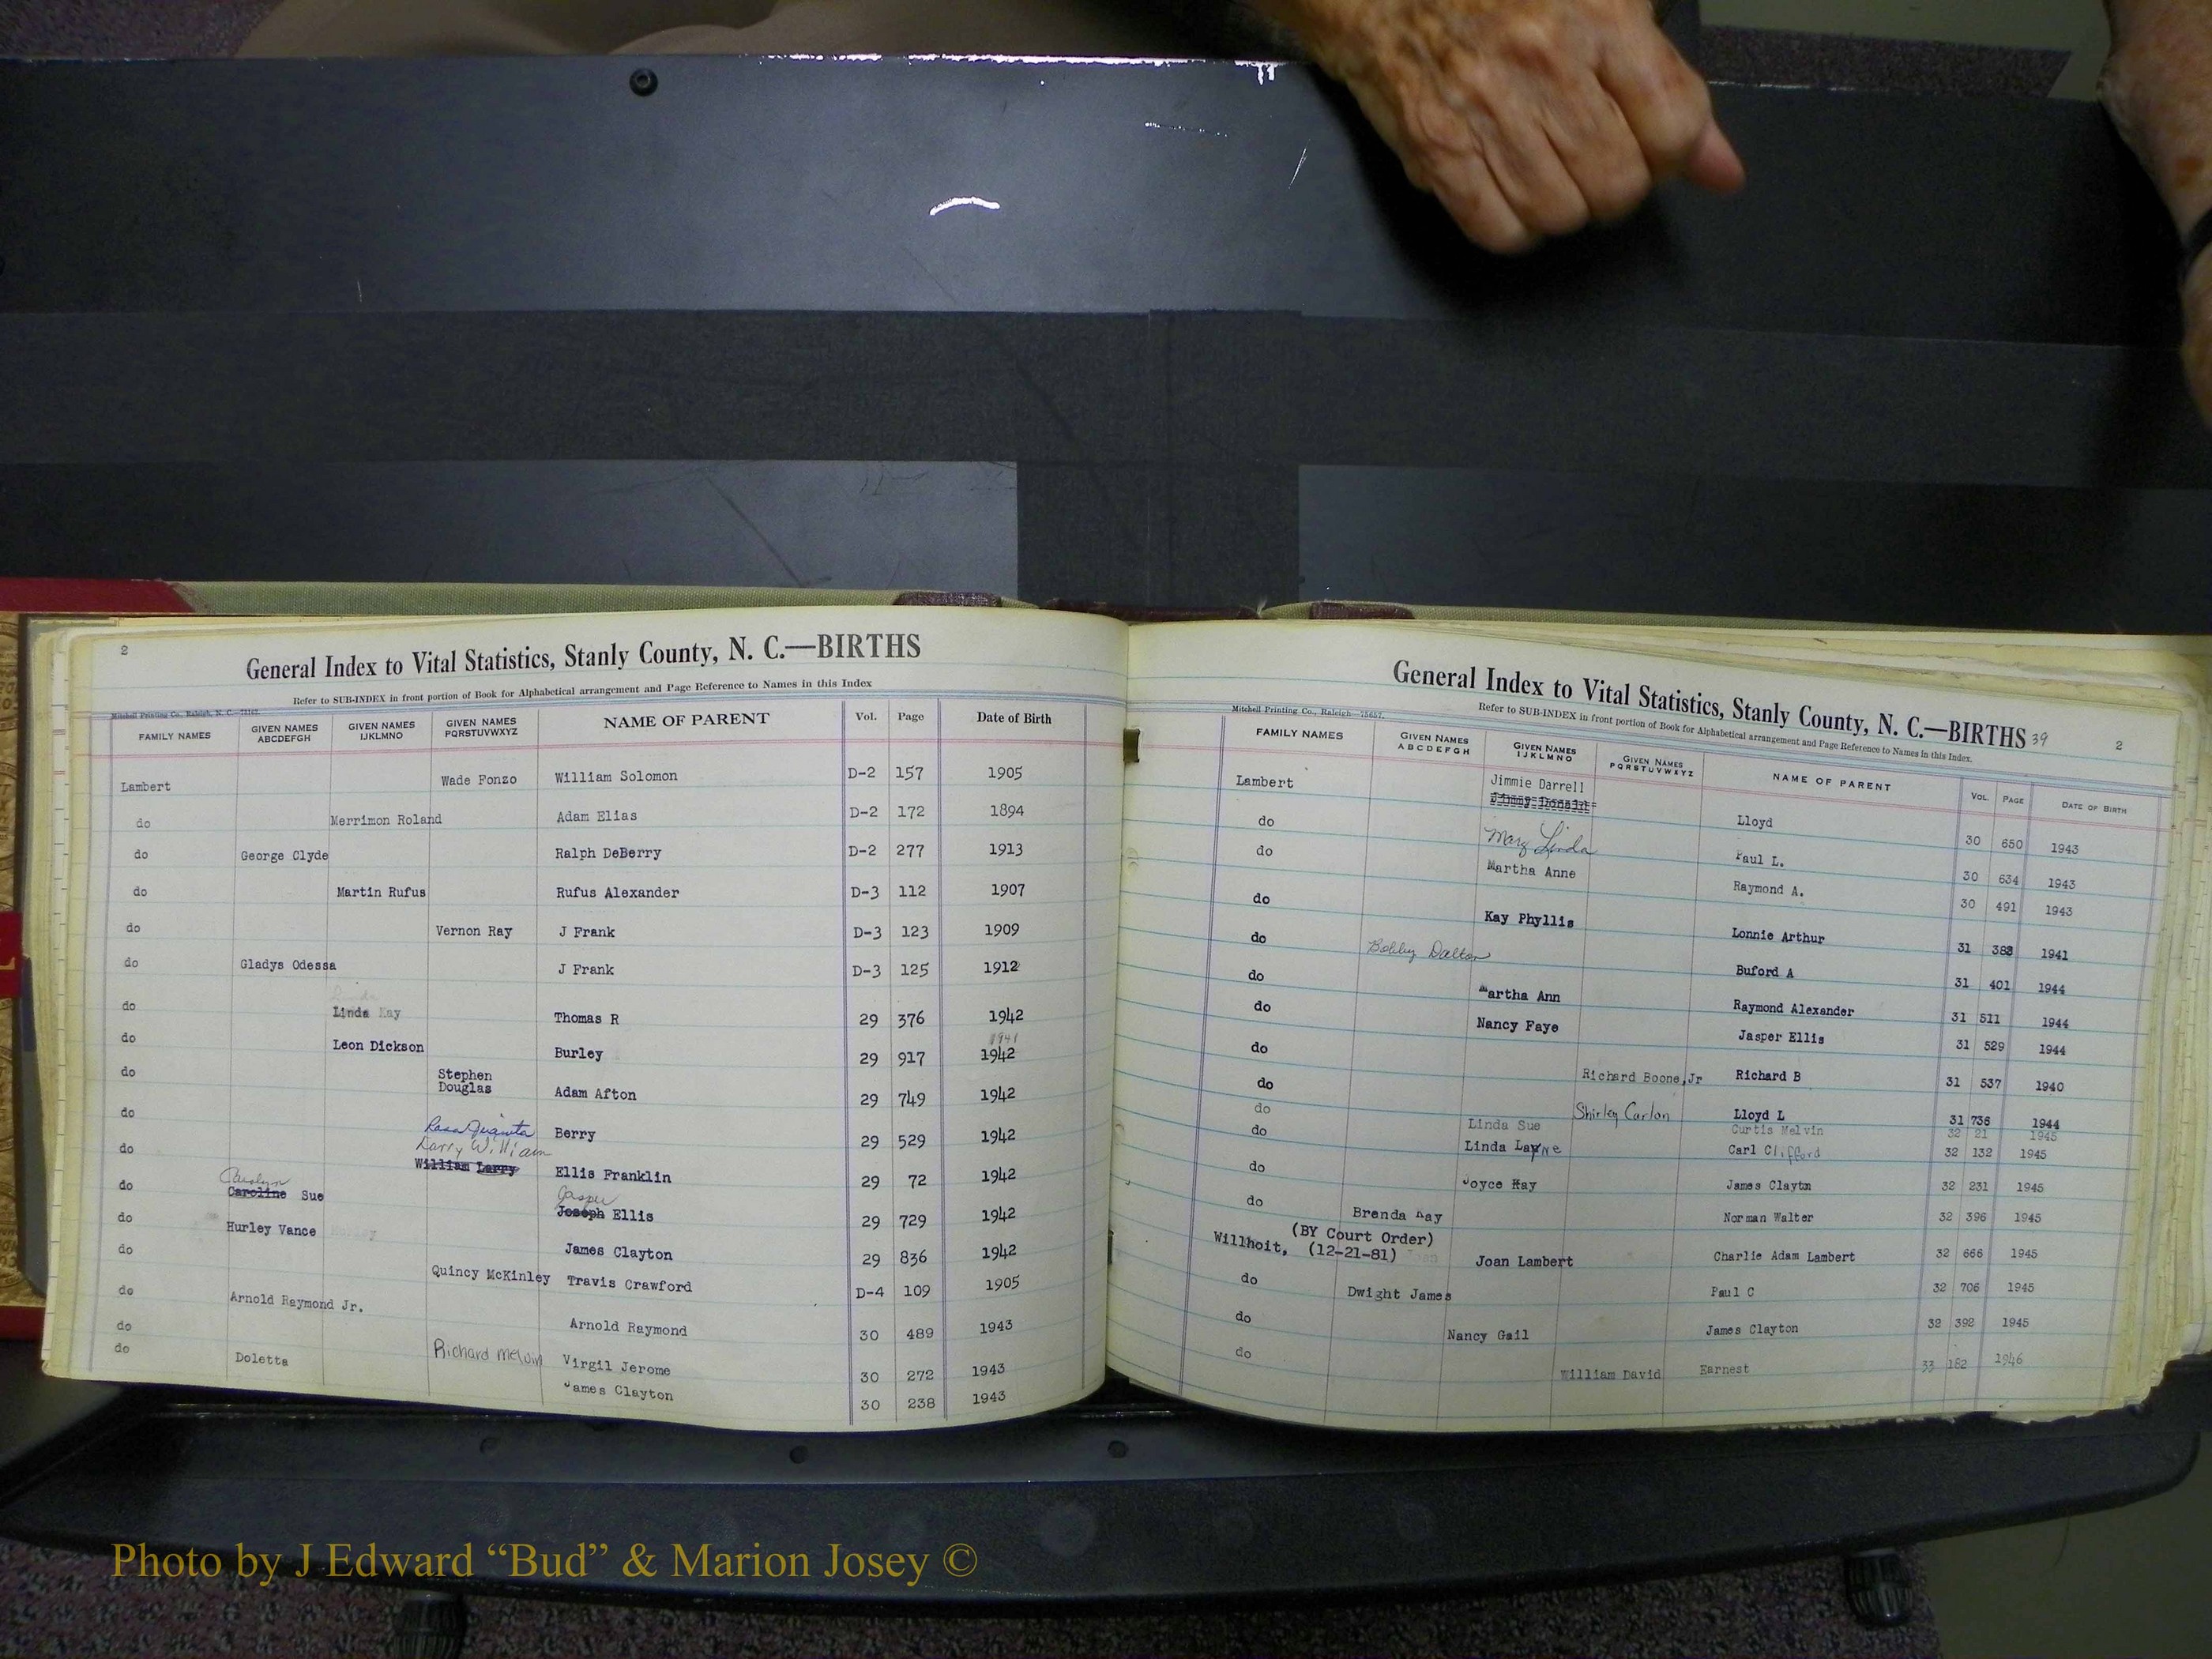 2
General Index to Vital Statistics, Stanly County, N. C.—BIRTHS
Refer to SUB-INDEX in front portion of Book for Alphabetical arrangement and Page Reference to Names in this Index
Mitchell Printing Co., Raleigh, N. C.
FAMILY NAMES GIVEN NAMES ABCDEFGH GIVEN NAMES IJKLMNO GIVEN NAMES PQRSTUVWXYZ NAME OF PARENT Vol. Page Date of Birth
Lambert Wade Fonzo William Solomon D-2 157 1905
do Merrimon Roland Adam Elias D-2 172 1894
do George Clyde Ralph DeBerry D-2 277 1913
do Martin Rufus Rufus Alexander D-3 112 1907
do Vernon Ray J Frank D-3 123 1909
do Gladys Odessa J Frank D-3 125 1912
do Linda Kay Thomas R 29 376 1942
1941
do Leon Dickson Burley 29 917 1942
do Stephen Douglas Adam Afton 29 749 1942
do Rosa Juanita Berry 29 529 1942
Larry William
do William Larry Ellis Franklin 29 72 1942
Carolyn Jasper
do Caroline Sue Joseph Ellis 29 729 1942
do Hurley Vance James Clayton 29 836 1942
do Quincy McKinley Travis Crawford D-4 109 1905
do Arnold Raymond Jr. Arnold Raymond 30 489 1943
do Richard Melvin Virgil Jerome 30 272 1943
do Doletta James Clayton 30 238 1943
General Index to Vital Statistics, Stanly County, N. C.—BIRTHS 39 2
Refer to SUB-INDEX in front portion of Book for Alphabetical arrangement and Page Reference to Names in this Index.
Mitchell Printing Co., Raleigh—75657.
FAMILY NAMES GIVEN NAMES ABCDEFGH GIVEN NAMES IJKLMNO GIVEN NAMES PQRSTUVWXYZ NAME OF PARENT VOL. PAGE DATE OF BIRTH
Lambert Jimmie Darrell Lloyd 30 650 1943
do Mary Linda Paul L. 30 634 1943
do Martha Anne Raymond A. 30 491 1943
do Kay Phyllis Lonnie Arthur 31 388 1941
do Bobby Dalton Buford A 31 401 1944
do Martha Ann Raymond Alexander 31 511 1944
do Nancy Faye Jasper Ellis 31 529 1944
do Richard Boone, Jr Richard B 31 537 1940
do Shirley Carlan Lloyd L 31 736 1944
do Linda Sue Curtis Melvin 32 21 1945
do Linda Layne Carl Clifford 32 132 1945
do Joyce Kay James Clayton 32 231 1945
do Brenda Kay Norman Walter 32 396 1945
(BY Court Order)
Willhoit, (12-21-81) Joan Lambert Charlie Adam Lambert 32 666 1945
do Dwight James Paul C 32 706 1945
do Nancy Gail James Clayton 32 392 1945
do William David Earnest 33 182 1946
Photo by J Edward “Bud” & Marion Josey ©